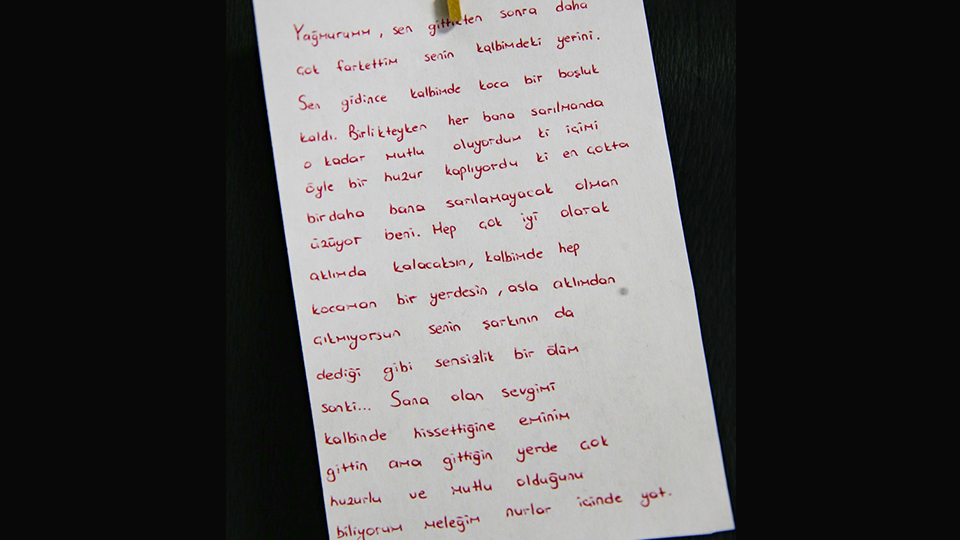 Yağmurumm, sen gittikten sonra daha
çok farkettim senin kalbimdeki yerini.
Sen gidince kalbimde koca bir boşluk
kaldı. Birlikteyken her bana sarılmanda
o kadar mutlu oluyordum ki içimi
öyle bir huzur kaplıyordu ki en çokta
birdaha bana sarılamayacak olman
üzüyor beni. Hep çok iyi olarak
aklımda kalacaksın, kalbimde hep
kocaman bir yerdesin, asla aklımdan
çıkmıyorsun senin şarkının da
dediği gibi sensizlik bir ölüm
sanki... Sana olan sevgimi
kalbinde hissettiğine eminim
gittin ama gittiğin yerde çok
huzurlu ve mutlu olduğunu
biliyorum meleğim nurlar içinde yat.